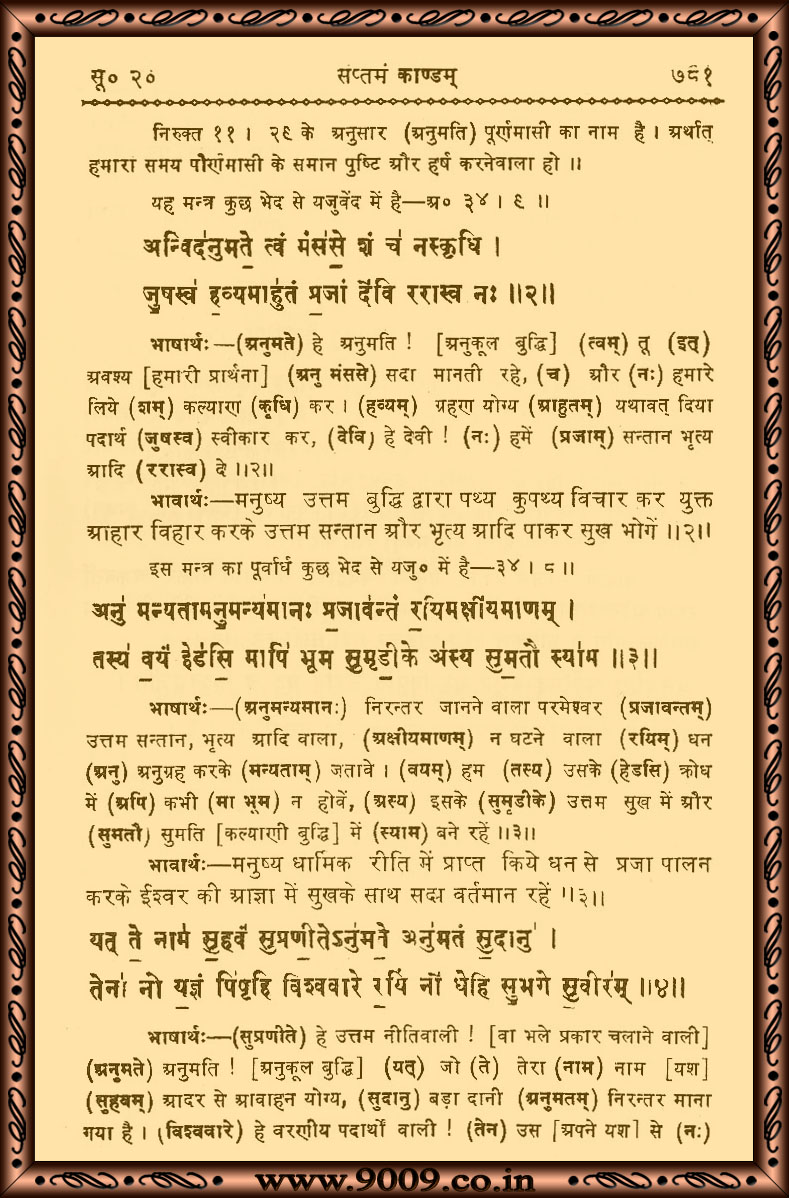 सू० २० सप्तमं काण्डम् ७८१
निरुक्त ११ । २९ के अनुसार (अनुमति) पूर्णमासी का नाम है । अर्थात्
हमारा समय पौर्णमासी के समान पुष्टि और हर्ष करनेवाला हो ॥
यह मन्त्र कुछ भेद से यजुर्वेद में है—अ० ३४ । ९ ॥
अन्विद॑नुमते॒ त्वं मंस॑से॒ शं च॑ नस्कृधि ।
जु॒षस्व॑ ह॒व्यमाहु॑तं प्र॒जां दे॑वि ररास्व नः ॥२॥
भाषार्थः—(अनुमते) हे अनुमति ! [अनुकूल बुद्धि] (त्वम्) तू (इत्)
अवश्य [हमारी प्रार्थना] (अनु मंससे) सदा मानती रहे, (च) और (नः) हमारे
लिये (शम्) कल्याण (कृधि) कर । (हव्यम्) ग्रहण योग्य (आहुतम्) यथावत् दिया
पदार्थ (जुषस्व) स्वीकार कर, (देवि) हे देवी ! (नः) हमें (प्रजाम्) सन्तान भृत्य
आदि (ररास्व) दे ॥२॥
भावार्थः—मनुष्य उत्तम बुद्धि द्वारा पथ्य कुपथ्य विचार कर युक्त
आहार विहार करके उत्तम सन्तान और भृत्य आदि पाकर सुख भोगें ॥२॥
इस मन्त्र का पूर्वार्ध कुछ भेद से यजु० में है—३४ । ८ ॥
अनु॑ मन्यतामनु॒मन्य॑मानः प्र॒जाव॑न्तं र॒यिमक्षी॑यमाणम् ।
तस्य॑ व॒यं हेड॑सि॒ मापि॑ भूम सुमृडी॒के अ॑स्य सुम॒तौ स्या॑म ॥३॥
भाषार्थः—(अनुमन्यमानः) निरन्तर जानने वाला परमेश्वर (प्रजावन्तम्)
उत्तम सन्तान, भृत्य आदि वाला, (अक्षीयमाणम्) न घटने वाला (रयिम्) धन
(अनु) अनुग्रह करके (मन्यताम्) जतावे । (वयम्) हम (तस्य) उसके (हेडसि) क्रोध
में (अपि) कभी (मा भूम) न होवें, (अस्य) इसके (सुमृडीके) उत्तम सुख में और
(सुमतौ) सुमति [कल्याणी बुद्धि] में (स्याम) बने रहें ॥३॥
भावार्थः—मनुष्य धार्मिक रीति में प्राप्त किये धन से प्रजा पालन
करके ईश्वर की आज्ञा में सुखके साथ सदा वर्तमान रहें ॥३॥
यत् ते॒ नाम॑ सु॒हवं॑ सुप्रणी॒तेऽनु॑मते॒ अनु॑मतं सु॒दानु॑ ।
तेना॑ नो य॒ज्ञं पि॑पृहि विश्ववारे र॒यिं नो॑ धेहि सुभगे सु॒वीर॑म् ॥४॥
भाषार्थः—(सुप्रणीते) हे उत्तम नीतिवाली ! [वा भले प्रकार चलाने वाली]
(अनुमते) अनुमति ! [अनुकूल बुद्धि] (यत्) जो (ते) तेरा (नाम) नाम [यश]
(सुहवम्) आदर से आवाहन योग्य, (सुदानु) बड़ा दानी (अनुमतम्) निरन्तर माना
गया है । (विश्ववारे) हे वरणीय पदार्थों वाली ! (तेन) उस [अपने यश] से (नः)
www.9009.co.in